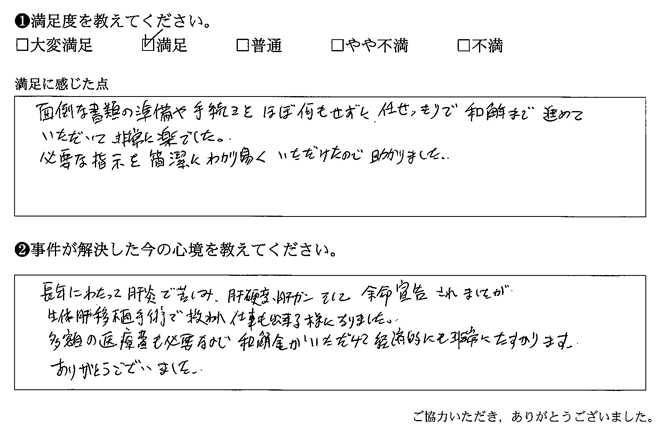 ❶満足度を教えてください。
□大変満足 ☑満足 □普通 □やや不満 □不満
満足に感じた点
面倒な書類の準備や手続きをほぼ何もせずに、任せっきりで和解まで進めて
いただいて非常に楽でした。
必要な指示を簡潔にわかり易くいただけたので助かりました。
❷事件が解決した今の心境を教えてください。
長年にわたって肝炎で苦しみ、肝硬変、肝ガンそして余命宣告されましたが
生体肝移植手術で救われ仕事も出来る様になりました。
多額の医療費も必要なので和解金がいただけて経済的にも非常にたすかります。
ありがとうございました。
ご協力いただき，ありがとうございました。